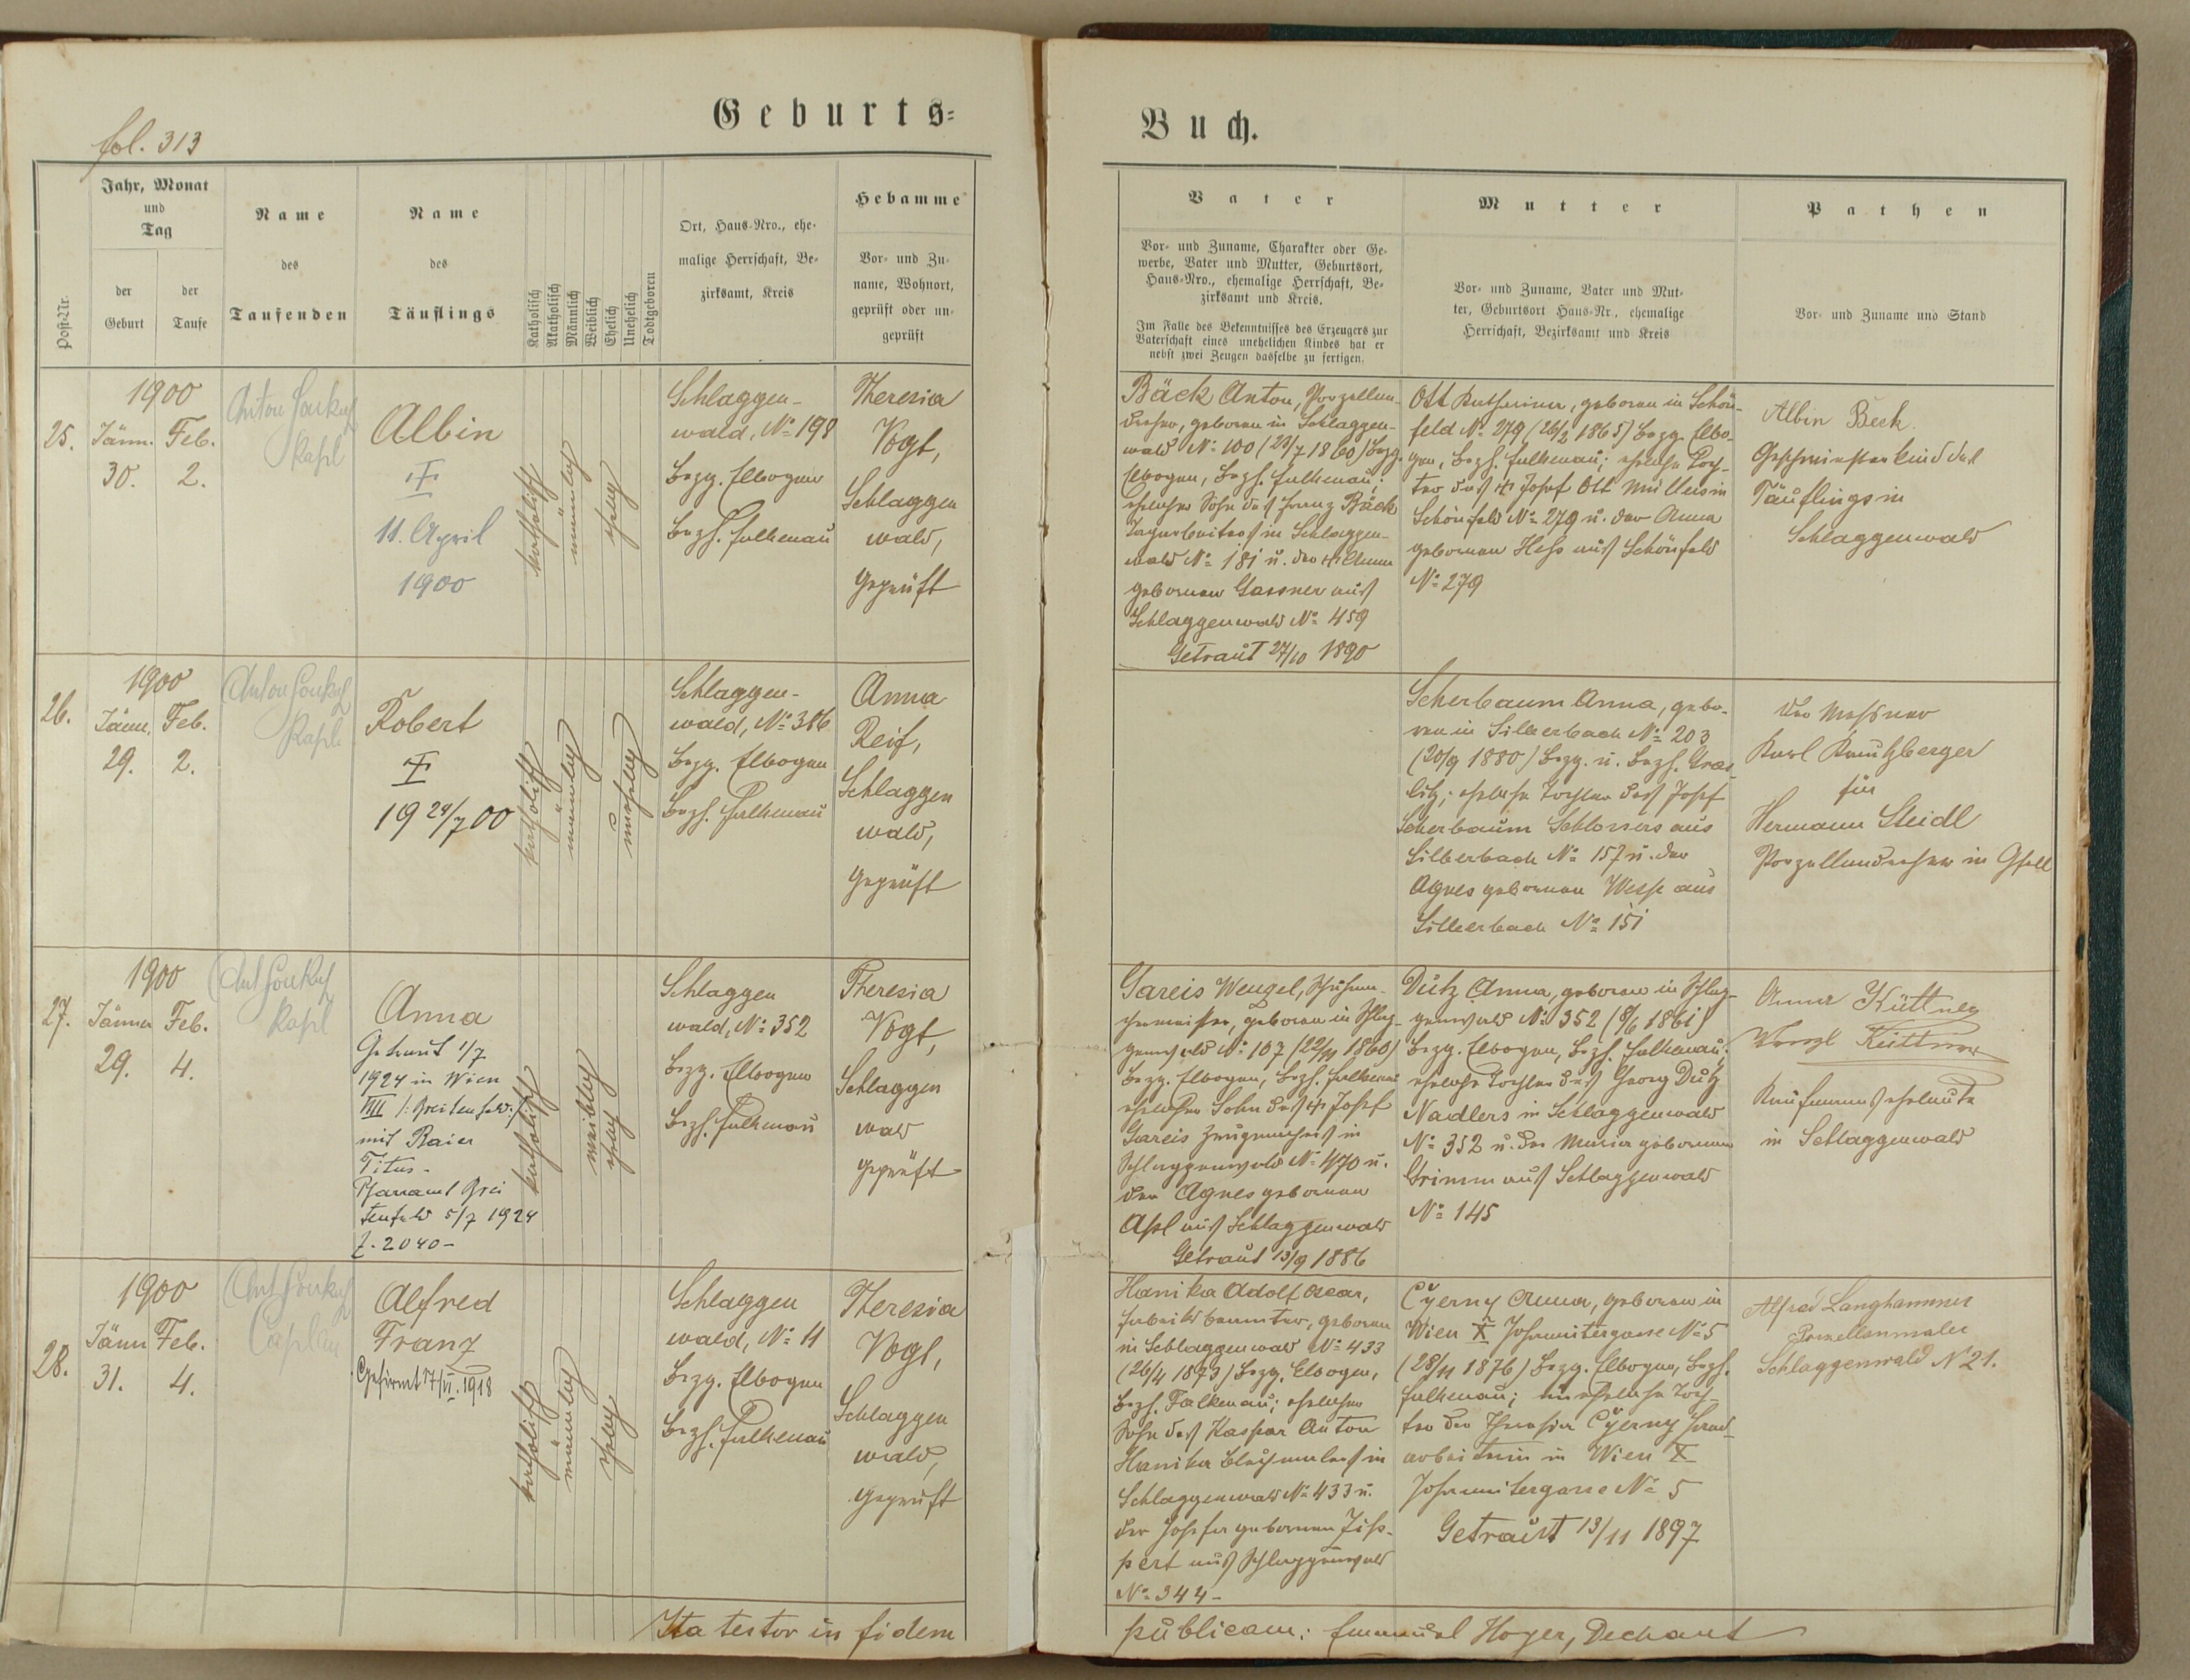 Geburts=
Buch.
fol. 313
Post-Nr.
Jahr, Monat
und
Tag
der
Geburt
der
Taufe
Name
des
Taufenden
Name
des
Täuflings
Katholisch
Akatholisch
Männlich
Weiblich
Ehelich
Unehelich
Todtgeboren
Ort, Haus-Nro., ehe-
malige Herrschaft, Be-
zirksamt, Kreis
Hebamme
Vor- und Zu-
name, Wohnort,
geprüft oder un-
geprüft
Vater
Vor- und Zuname, Charakter oder Ge-
werbe, Vater und Mutter, Geburtsort,
Haus-Nro., ehemalige Herrschaft, Be-
zirksamt und Kreis.
Im Falle des Bekenntnisses des Erzeugers zur
Vaterschaft eines unehelichen Kindes hat er
nebst zwei Zeugen dasselbe zu fertigen.
Mutter
Vor- und Zuname, Vater und Mut-
ter, Geburtsort Haus-Nr., ehemalige
Herrschaft, Bezirksamt und Kreis
Pathen
Vor- und Zuname und Stand
25.
1900
Jänn. Feb.
30. 2.
Anton
Kapl
Albin
†
11. April
1900
katholisch
männlich
ehelich
Schlaggen-
wald, No 198
Bezg. Elbogen
Bezh. Falkenau
Theresia
Vogt,
Schlaggen
wald,
geprüft
Bäck Anton, Porzellan-
dreher, geboren in Schlaggen-
wald No 100 (22/7 1860) Bezg.
Elbogen, Bezh. Falkenau;
ehelicher Sohn des Franz Bäck
Tagarbeiters in Schlaggen-
wald No 181 u. der † Anna
gebornen Gassner aus
Schlaggenwald No 459
Getraut 27/10 1890
Ott Katharina, geboren in Schön-
feld No 279 (26/2 1865) Bezg. Elbo-
gen, Bezh. Falkenau; eheliche Toch-
ter des † Josef Ott Müllers in
Schönfeld No 279 u. der Anna
gebornen Hess aus Schönfeld
No 279
Albin Beck
Geschwisterkind des
Täuflings in
Schlaggenwald
26.
1900
Jänn. Feb.
29. 2.
Anton
Kapl.
Robert
†
19 24/7 00
katholisch
männlich
unehelich
Schlaggen-
wald, No 386
Bezg. Elbogen
Bezh. Falkenau
Anna
Reif,
Schlaggen
wald,
geprüft
Scherbaum Anna, gebo-
ren in Silberbach No 203
(20/9 1880) Bezg. u. Bezh. Gras-
litz; eheliche Tochter des Josef
Scherbaum Schlossers aus
Silberbach No 157 u. der
Agnes gebornen Wesp aus
Silberbach No 151
der Messner
Karl Kreutzberger
für
Hermann Steidl
Porzellandreher in Gfell
27.
1900
Jänner Feb.
29. 4.
Ant
Kapl
Anna
Getraut 1/7
1924 in Wien
VIII /: Breitenfeld :/
mit Raier
Titus -
Pfarramt Brei
tenfeld 5/7 1924
Z. 2040 -
katholisch
weiblich
ehelich
Schlaggen
wald, No 352
Bezg. Elbogen
Bezh. Falkenau
Theresia
Vogt,
Schlaggen
wald
geprüft
Gareis Wenzel, Schuhma-
chermeister, geboren in Schlag-
genwald No 107 (22/11 1860)
Bezg. Elbogen, Bezh. Falkenau
ehelicher Sohn des † Josef
Gareis Zeugmachers in
Schlaggenwald No 470 u.
der Agnes gebornen
Apl aus Schlaggenwald
Getraut 13/9 1886
Dütz Anna, geboren in Schlag-
genwald No 352 (8/6 1861)
Bezg. Elbogen, Bezh. Falkenau;
eheliche Tochter des Georg Dütz
Nadlers in Schlaggenwald
No 352 u. der Maria gebornen
Grimm aus Schlaggenwald
No 145
Anna Küttner
Wenzl Küttner
Kaufmannseheleute
in Schlaggenwald
28.
1900
Jänn Feb.
31. 4.
Ant
Caplan
Alfred
Franz
Gefirmt 17/VI. 1918
katholisch
männlich
ehelich
Schlaggen
wald, No 11
Bezg. Elbogen
Bezh. Falkenau
Theresia
Vogt,
Schlaggen
wald,
geprüft
Hanika Adolf Oscar,
Fabriksbeamter, geboren
in Schlaggenwald No 433
(26/4 1873) Bezg. Elbogen,
Bezh. Falkenau; ehelicher
Sohn des Kaspar Anton
Hanika Blaümalers in
Schlaggenwald No 433 u.
der Josefa gebornen Zip-
pert aus Schlaggenwald
No 344 -
Czerny Anna, geboren in
Wien X Johannitergasse No 5
(28/11 1876) Bezg. Elbogen, Bezh.
Falkenau; uneheliche Toch-
ter der Theresia Czerny Hand-
arbeiterin in Wien X
Johannitergasse No 5
Getraut 13/11 1897
Alfred Langhammer
Porzellanmaler
Schlaggenwald N 21.
Ita testor in fidem
publicam: Emanuel Hoyer, Dechant